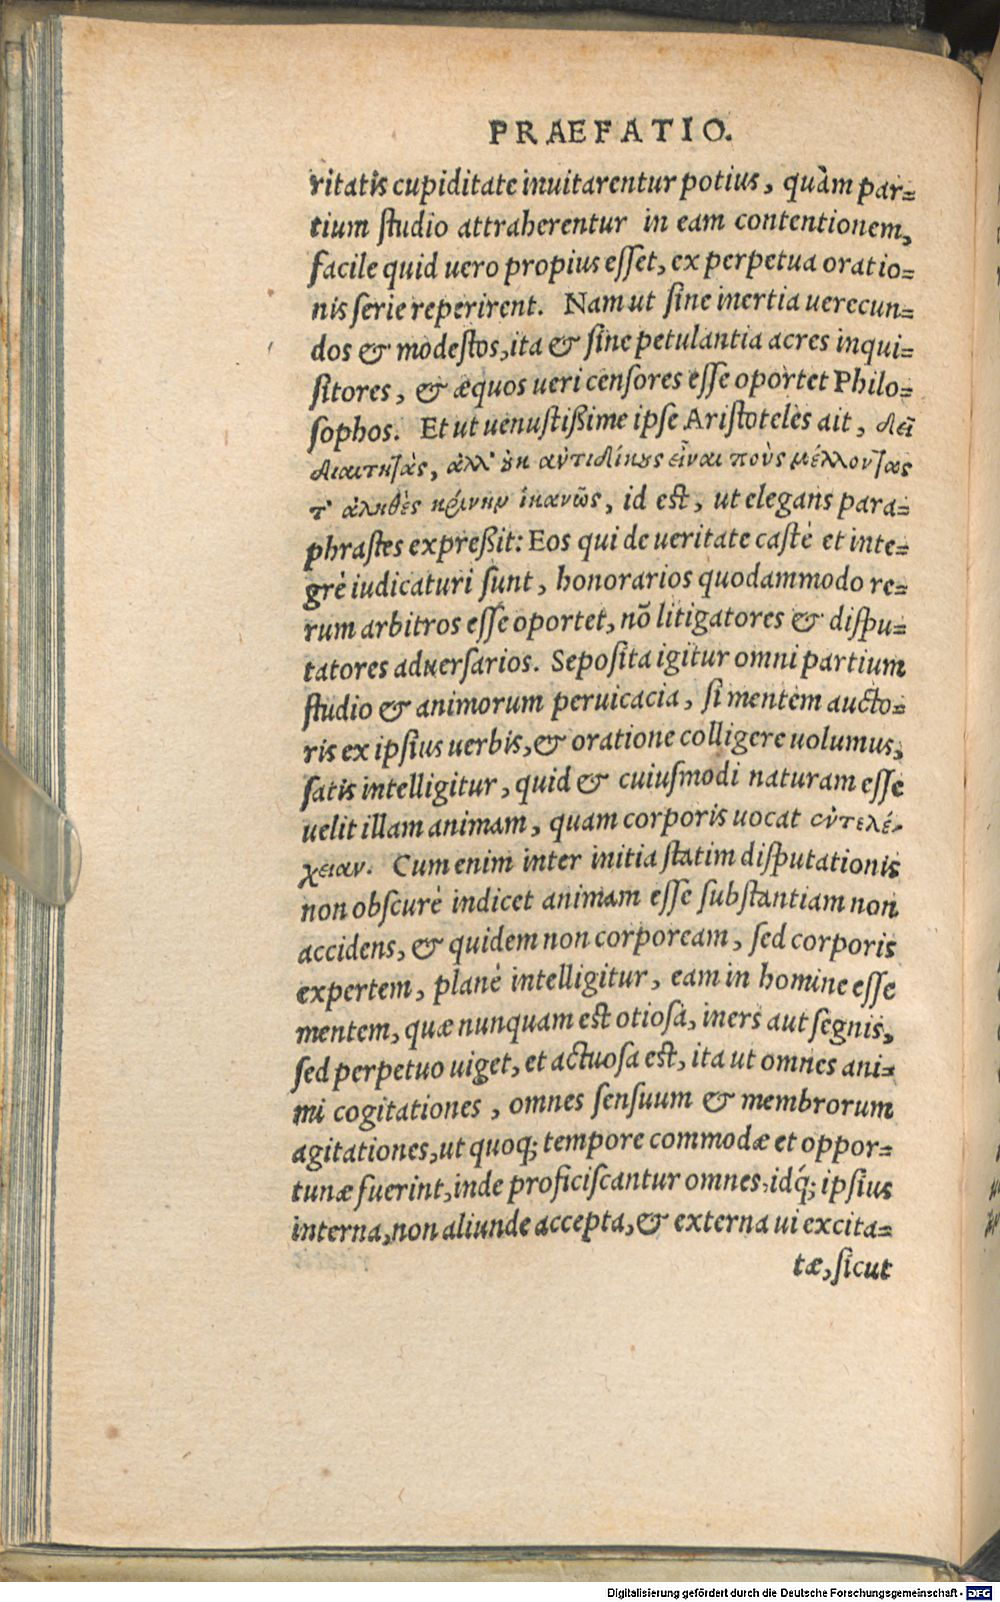 PRAEFATIO.
ritatis cupiditate inuitarentur potius, quàm par=
tium ſtudio attraherentur in eam contentionem,
facile quid uero propius eſſet, ex perpetua oratio=
nis ſerie reperirent. Nam ut ſine inertia uerecun=
dos & modeſtos, ita & ſine petulantia acres inqui=
ſitores, & æquos ueri cenſores eſſe oportet Philo=
ſophos. Et ut uenuſtißime ipſe Ariſtoteles ait, δεῖ
διαιτητὰς, ἀλλ' ȣ̓κ ἀντιδίκȣς εἶναι τοὺς μέλλοντας
τ' ἀληθὲς κρίνειν ἱκανῶς, id eſt, ut elegans para=
phraſtes expreßit: Eos qui de ueritate caſtè et inte=
grè iudicaturi ſunt, honorarios quodammodo re=
rum arbitros eſſe oportet, nõ litigatores & diſpu=
tatores aduerſarios. Sepoſita igitur omni partium
ſtudio & animorum peruicacia, ſi mentem aucto=
ris ex ipſius uerbis, & oratione colligere uolumus,
ſatis intelligitur, quid & cuiuſmodi naturam eſſe
uelit illam animam, quam corporis uocat ἐντελέ-
χειαν. Cum enim inter initia ſtatim diſputationis
non obſcurè indicet animam eſſe ſubſtantiam non
accidens, & quidem non corpoream, ſed corporis
expertem, planè intelligitur, eam in homine eſſe
mentem, quæ nunquam eſt otioſa, iners aut ſegnis,
ſed perpetuo uiget, et actuoſa eſt, ita ut omnes ani=
mi cogitationes, omnes ſenſuum & membrorum
agitationes, ut quoq; tempore commodæ et oppor=
tunæ fuerint, inde proficiſcantur omnes, idq́; ipſius
interna, non aliunde accepta, & externa ui excita=
tæ, ſicut
Digitalisierung gefördert durch die Deutsche Forschungsgemeinschaft - DFG